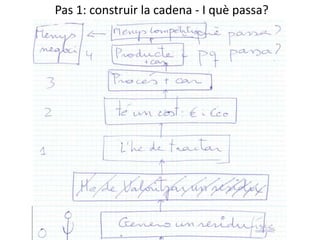 Pas 1: construir la cadena - I què passa?
Menys negoci ← Menys competitiu què passa?
4 Producte + car pq passa?
3 Procés + car
2 té un cost: € - Eco
1 L'he de tractar
He de valoritzar un residu
0 Genero un residu